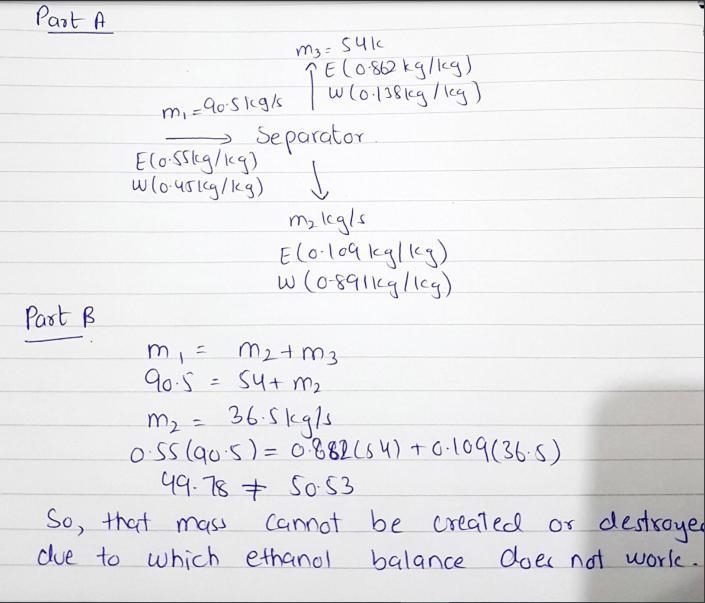 Part A
m3 = 54k
E (0.862 kg/kg)
W (0.138 kg/kg)
m1 = 90.5 kg/s
Separator
E(0.55kg/kg)
W(0.45kg/kg)
m2 kg/s
E(0.109 kg/kg)
W (0.891kg/kg)
Part B
m1 = m2 + m3
90.5 = 54 + m2
m2 = 36.5 kg/s
0.55 (90.5) = 0.882(54) + 0.109(36.5)
49.78 ≠ 50.53
So, that mass cannot be created or destroye
due to which ethanol balance does not work.